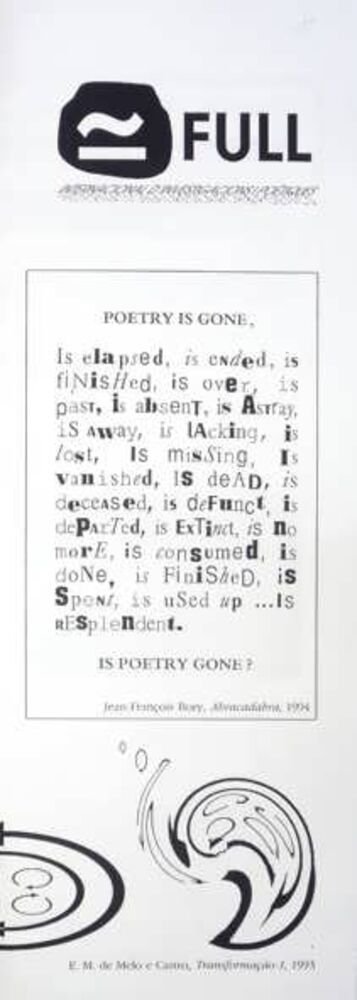 ≅ FULL
POETRY IS GONE,
Is elapsed, is ended, is
fiNisHed, is over, is
past, is absenT, is Astray,
iS Away, is lAcking, is
lost, Is misSing, Is
vanished, IS deAD, is
deceASed, is deFunct, is
dePArTed, is ExTinct, is no
morE, is consumed, is
doNe, is FiniSheD, iS
Spent, is uSed up ...Is
RESplendent.
IS POETRY GONE ?
Jean-François Bory, Abracadabra, 1994
E. M. de Melo e Castro, Transformação-1, 1993